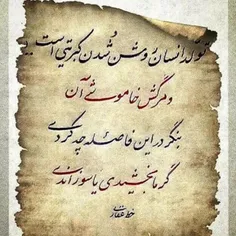 تولد انسان روشن شدن کبریتی است
و مرگش خاموشی آن
بنگر در این فاصله چه کردی
گرما بخشیدی یا سوزاندی